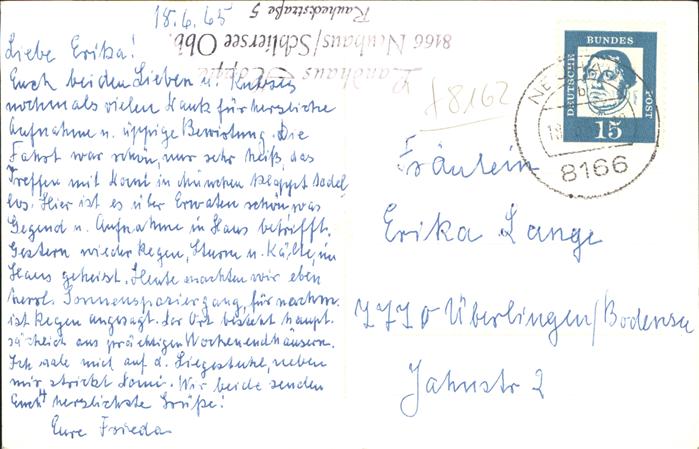 18.6.65
Landhaus Hoppe
8166 Neuhaus/Schliersee Obb.
Rauheckstraße 5
Liebe Erika!
Euch beiden Lieben u.
nochmals vielen Dank für herzliche
Aufnahme u. üppige Bewirtung. Die
Fahrt war schön, nur sehr heiß, das
Treffen mit Romi in München klappt tadel
los. Hier ist es über Erwarten schön, was
Gegend u. Aufnahme in Haus betrifft.
Gestern wieder Regen, Sturm u. Kälte, im
Haus geheizt. Heute machten wir eben
herrl. Sonnenspaziergang, für nachm.
ist Regen angesagt. Der Ort besteht haupt
sächlich aus prächtigen Wochenendhäusern.
Ich aale mich auf d. Liegestuhl, neben
mir strickt Romi. Wir beide senden
Euch herzlichste Grüße!
Eure Frieda
DEUTSCHE
BUNDES
POST
15
8166
f8162
Fräulein
Erika Lange
7770 Überlingen/Bodensee
Jahnstr 2